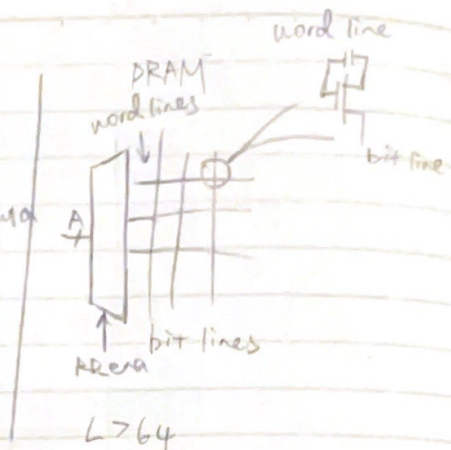 word line
DRAM
word lines
bit line
A
bit lines
L > 64